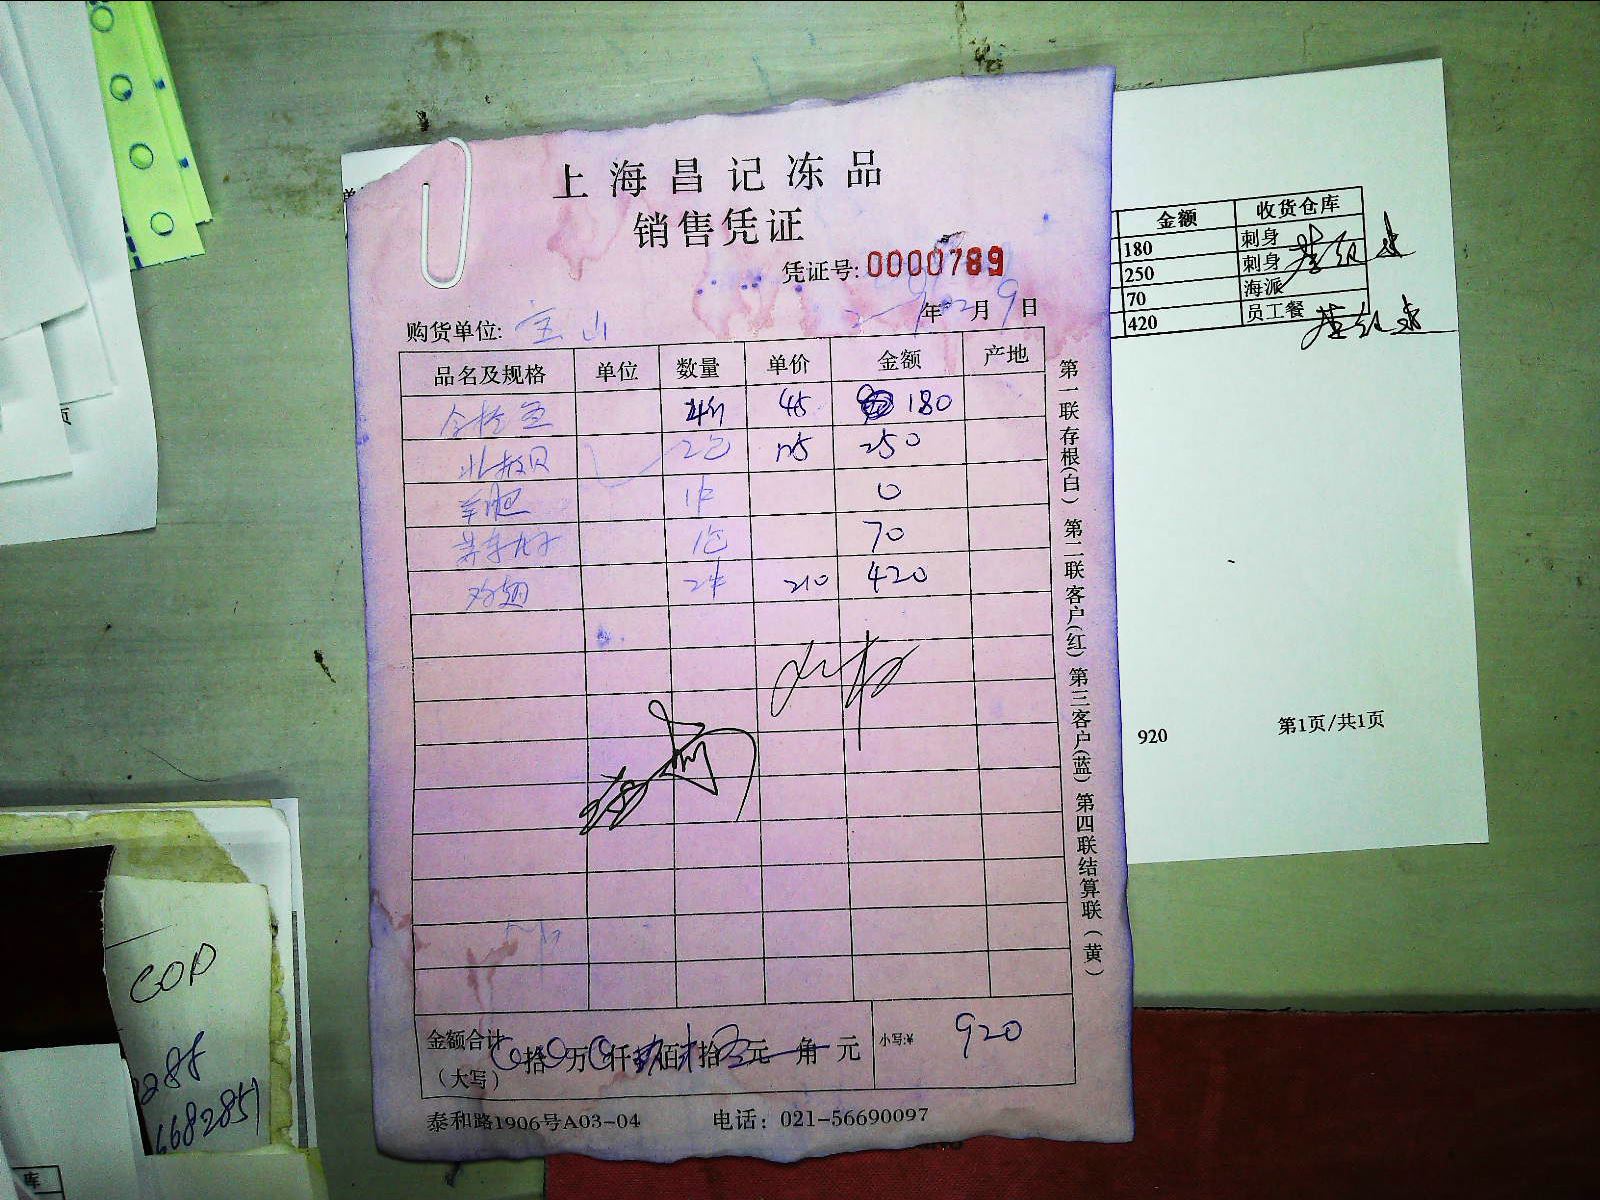 上海昌记冻品
销售凭证
凭证号: 0000789
购货单位: 宝山 年12月9日
品名及规格 单位 数量 单价 金额 产地
4斤 45 180
北极贝 2包 125 250
羊肥 1件 0
1包 70
鸡翅 2件 210 420
金额合计 拾 万 仟 佰 拾 元 角 元 小写:¥ 920
（大写）
泰和路1906号A03-04 电话：021-56690097
第一联存根(白) 第二联客户(红) 第三客户(蓝) 第四联结算联（黄）
金额 收货仓库
180 刺身
250 刺身
70 海派
420 员工餐
920 第1页/共1页
COD
6682851
库